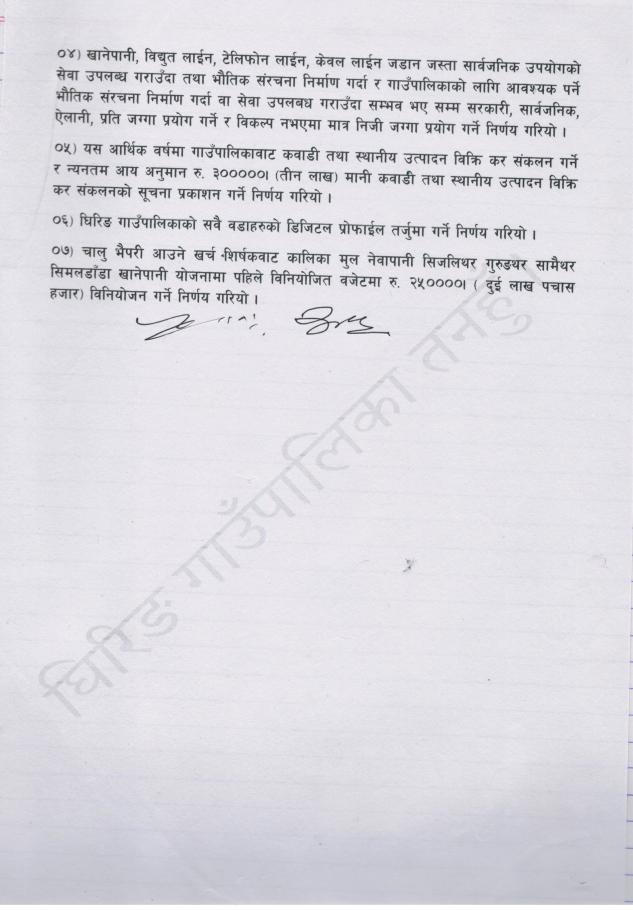 ०४) खानेपानी, विद्युत लाईन, टेलिफोन लाईन, केवल लाईन जडान जस्ता सार्वजनिक उपयोगको
सेवा उपलब्ध गराउँदा तथा भौतिक संरचना निर्माण गर्दा र गाउँपालिकाको लागि आवश्यक पर्ने
भौतिक संरचना निर्माण गर्दा वा सेवा उपलब्ध गराउँदा सम्भव भए सम्म सरकारी, सार्वजनिक,
ऐलानी, प्रति जग्गा प्रयोग गर्ने र विकल्प नभएमा मात्र निजी जग्गा प्रयोग गर्ने निर्णय गरियो ।
०५) यस आर्थिक वर्षमा गाउँपालिकावाट कवाडी तथा स्थानीय उत्पादन विक्रि कर संकलन गर्ने
र न्यनतम आय अनुमान रु. ३०००००। (तीन लाख) मानी कवाडी तथा स्थानीय उत्पादन विक्रि
कर संकलनको सूचना प्रकाशन गर्ने निर्णय गरियो ।
०६) घिरिङ गाउँपालिकाको सवै वडाहरुको डिजिटल प्रोफाईल तर्जुमा गर्ने निर्णय गरियो ।
०७) चालु भैपरी आउने खर्च शिर्षकवाट कालिका मुल नेवापानी सिजलिथर गुरुङथर सामैथर
सिमलडाँडा खानेपानी योजनामा पहिले विनियोजित वजेटमा रु. २५००००। ( दुई लाख पचास
हजार) विनियोजन गर्ने निर्णय गरियो ।
घिरिङ गाउँपालिका तनहुँ ।